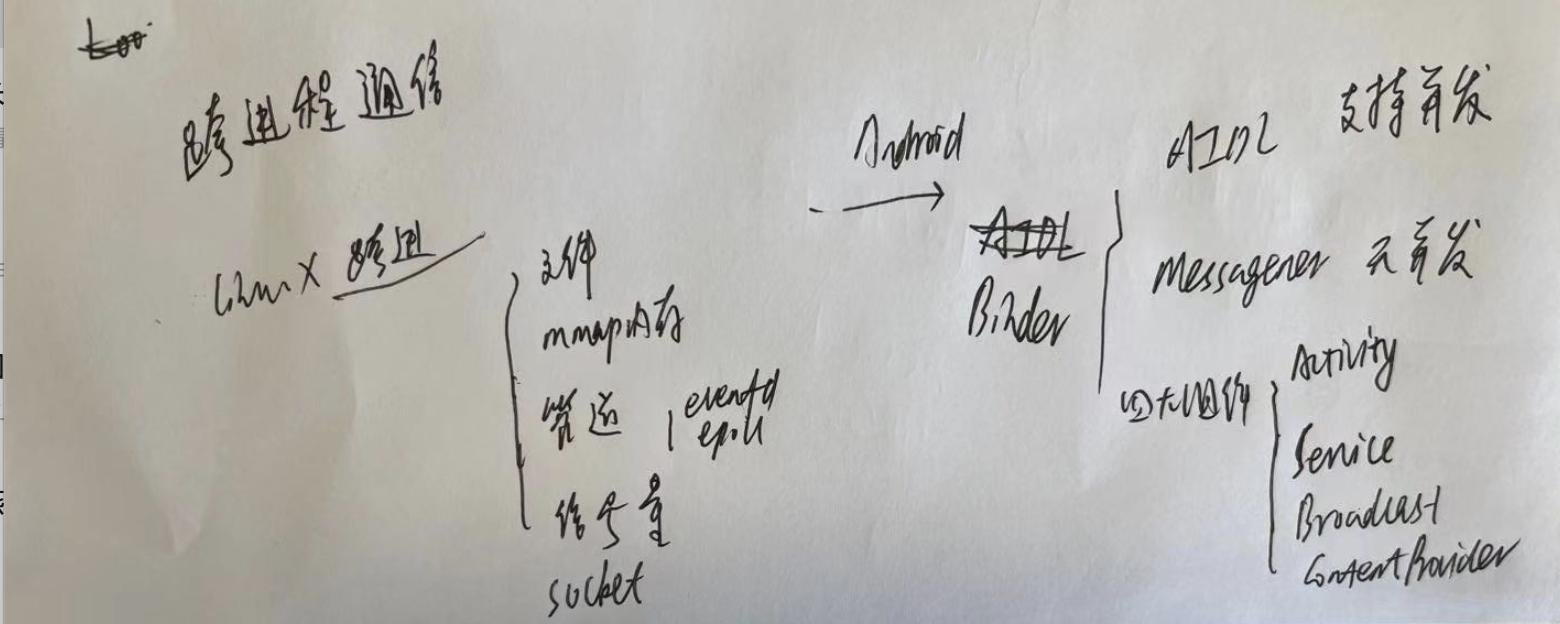 跨进程通信
Linux 跨进
文件
mmap内存
管道 eventfd
epoll
信号量
socket
Android
AIDL
Binder
AIDL 支持并发
Messagener 无并发
四大组件
Activity
Service
Broadcast
ContentProvider